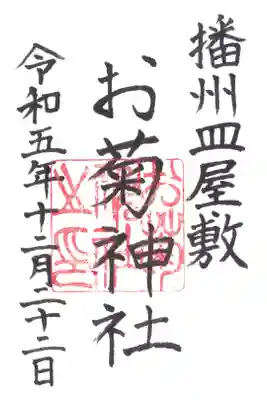 播州皿屋敷
お菊神社
令和五年十二月二十二日